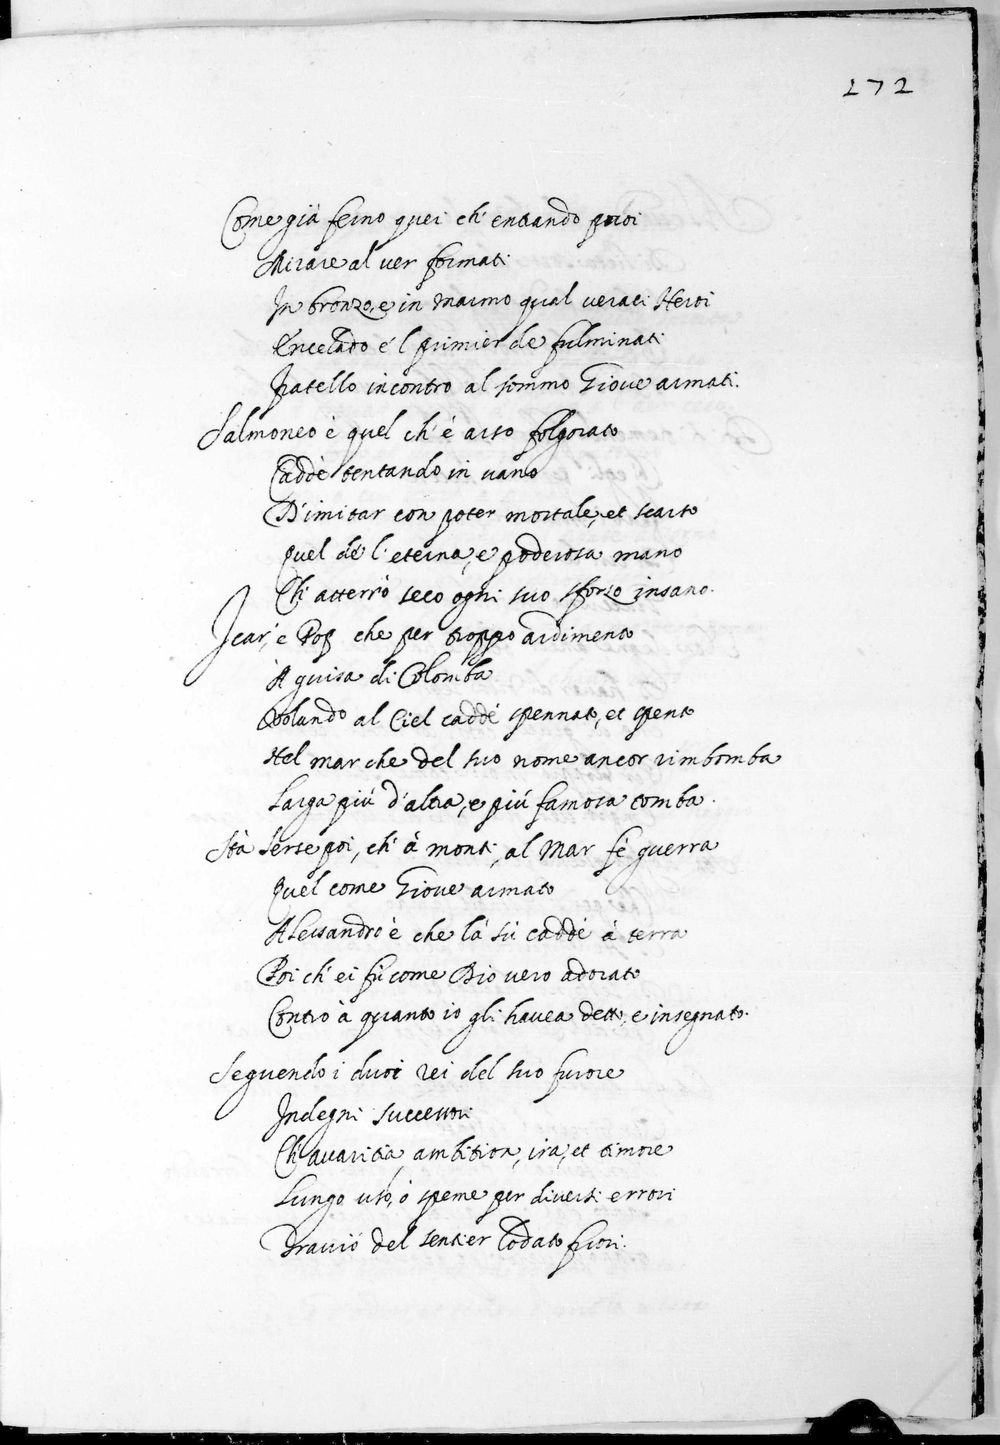 272
Come già ferno quei ch' entrando puoi
Mirare al ver formati
In bronzo, e in marmo qual verati Heroi
Encelado e 'l primier de fulminati
fratello incontro al sommo Giove armati.
Salmoneo è quel ch' è arso folgorato
Caddè tentando in vano
D'imitar con poter mortale, et scarso
Quel de l'eterna, e poderosa mano
Ch' atterrò seco ogni suo sforzo insano.
Icar, è Poſ che per troppo ardimento
A guisa di Colomba
Volando al Ciel caddè spennato, et spento
Nel mar che del suo nome ancor rimbomba
Larga più d'altra, e più famosa tomba.
Stà Serse poi, ch' à monti, al Mar fè guerra
Quel come Giove armato
Alessandro è che là sù caddè à terra
Poi ch' ei fù come Dio vero adorato
Contro à quanto io gli havea detto, e insegnato.
Seguendo i duoi rei del suo furore
Indegni successori
Ch' avaritia, ambition, ira, et timore
Lungo uso, ò speme per diversi errori
Traviò del sentier lodato fuori.